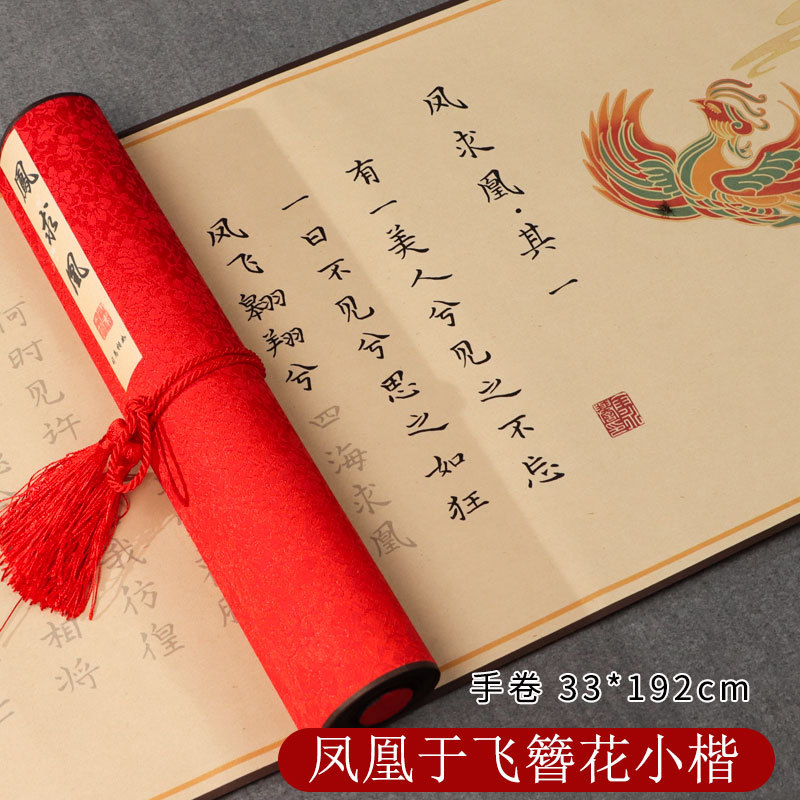 凤求凰·其一
有一美人兮见之不忘
一日不见兮思之如狂
凤飞翱翔兮
四海求凰
鳳求凰
何时见许
我彷徨
相将
手卷 33*192cm
凤凰于飞簪花小楷